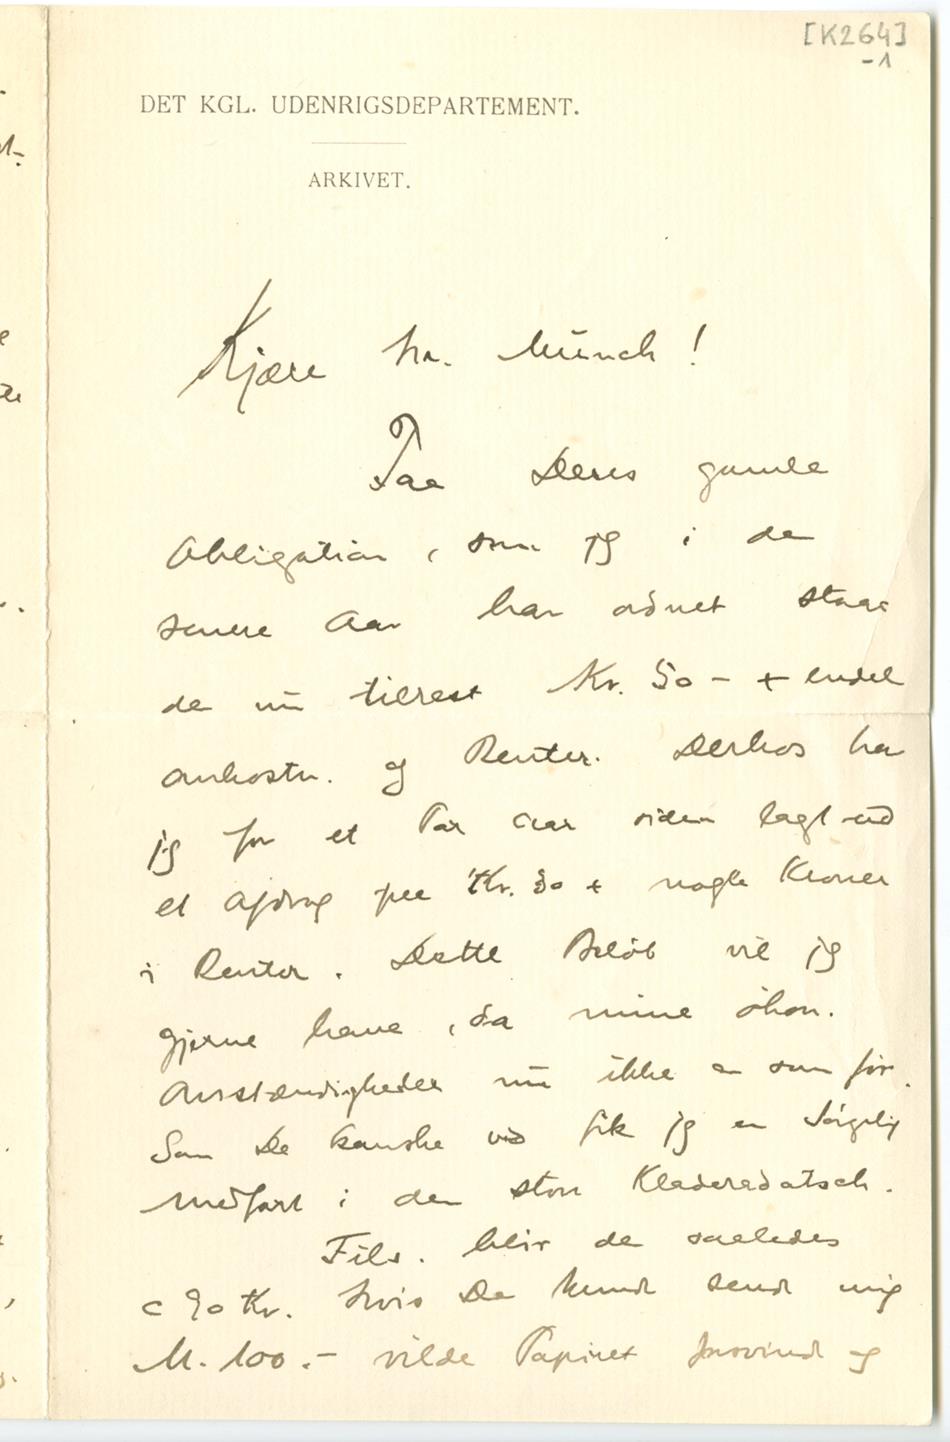 [K264]
-1
DET KGL. UDENRIGSDEPARTEMENT.
ARKIVET.
Kjære Hr. Munch!
Paa Deres gamle
Obligation, som jeg i de
senere Aar har ordnet staar
der nu tilrest Kr. 50 – + endel
omkostn. og Renter. Derhos har
jeg for et Par Aar siden lagt ud
et Afdrag paa Kr. 30 + nogle Kroner
i Renter. Dette Beløb vil jeg
gjerne have, da mine økon.
Omstændigheder nu ikke er som før.
Som De kanske ved fik jeg en sørgelig
Medfart i den store Kladderadatsch.
Tils. blir det saaledes
c 90 Kr. Hvis De kunde sende mig
M. 100.– vilde Papiret forsvinde og